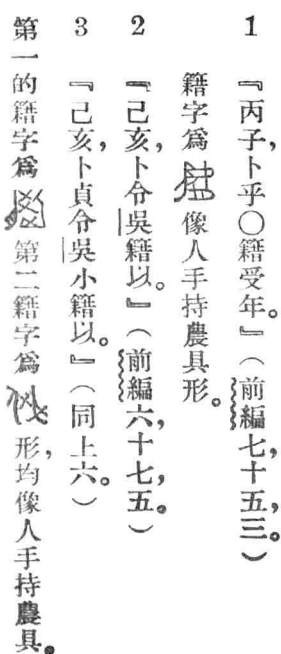 1 『丙子，卜乎〇籍受年。』（前編七十五，三。）
籍字爲 像人手持農具形。
2 『己亥，卜令吳籍以。』（前編六十七，五。）
3 『己亥卜貞令吳小籍以。』（同上六。）
第一的籍字爲 第二籍字爲 形，均像人手持農具。